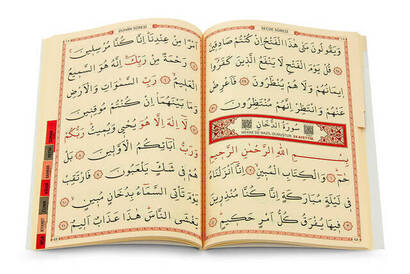 SECDE SÛRESİ
وَيَقُولُونَ مَتٰى هٰذَا الْفَتْحُ اِنْ كُنْتُمْ صَادِقٖينَ
قُلْ يَوْمَ الْفَتْحِ لَا يَنْفَعُ الَّذٖينَ كَفَرُٓوا
اٖيمَانُهُمْ وَلَا هُمْ يُنْظَرُونَ فَاَعْرِضْ
عَنْهُمْ وَانْتَظِرْ اِنَّهُمْ مُنْتَظِرُونَ
سُورَةُ الدُّخَانِ
بِسْمِ اللّٰهِ الرَّحْمٰنِ الرَّحٖيمِ
حٰمٓ وَالْكِتَابِ الْمُبٖينِ اِنَّٓا اَنْزَلْنَاهُ
فٖي لَيْلَةٍ مُبَارَكَةٍ اِنَّا كُنَّا مُنْذِرٖينَ
فٖيهَا يُفْرَقُ كُلُّ اَمْرٍ حَكٖيمٍ
DUHAN SÛRESİ
اَمْرًا مِنْ عِنْدِنَا اِنَّا كُنَّا مُرْسِلٖينَ
رَحْمَةً مِنْ رَبِّكَ اِنَّهُ هُوَ السَّمٖيعُ
الْعَلٖيمُ رَبِّ السَّمٰوَاتِ وَالْاَرْضِ
وَمَا بَيْنَهُمَا اِنْ كُنْتُمْ مُوقِنٖينَ
لَٓا اِلٰهَ اِلَّا هُوَ يُحْيٖي وَيُمٖيتُ رَبُّكُمْ
وَرَبُّ اٰبَٓائِكُمُ الْاَوَّلٖينَ بَلْ
هُمْ فٖي شَكٍّ يَلْعَبُونَ فَارْتَقِبْ
يَوْمَ تَأْتِي السَّمَٓاءُ بِدُخَانٍ مُبٖينٍ
يَغْشَى النَّاسَ هٰذَا عَذَابٌ اَلٖيمٌ